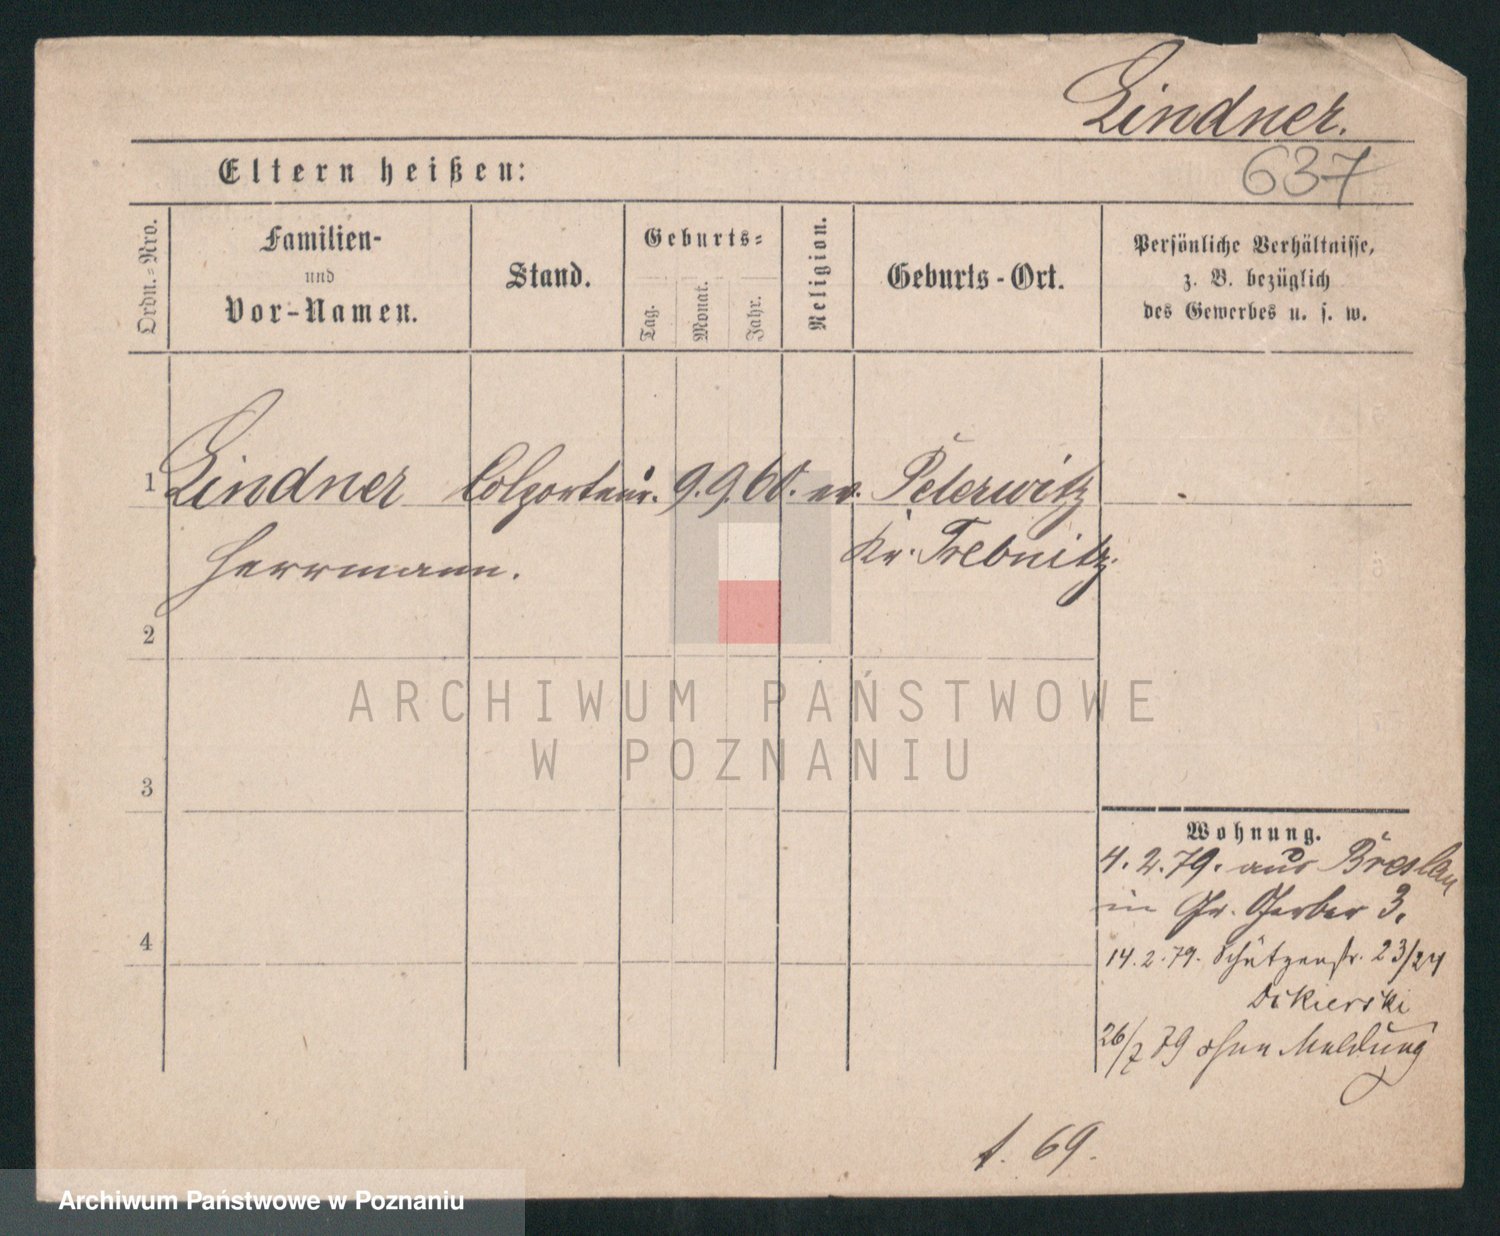 Lindner.
637
Eltern heißen:
Ordn.-Nro.
Familien-
und
Vor-Namen.
Stand.
Geburts-
Tag.
Monat.
Jahr.
Religion.
Geburts-Ort.
Persönliche Verhältnisse,
z. B. bezüglich
des Gewerbes u. s. w.
1 Lindner Colporteur. 9. 9. 60. ev. Peterwitz
Herrmann. Kr. Trebnitz.
2
3
4
Wohnung.
4. 2. 79. aus Breslau
in Gr. Gerber 3.
14. 2. 79. Schützenstr. 23/24
Dikierski
26/2 79 ohne Meldung
t. 69.
ARCHIWUM PAŃSTWOWE
W POZNANIU
Archiwum Państwowe w Poznaniu